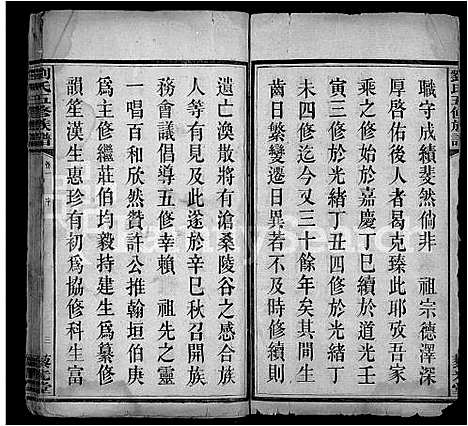 職守成績斐然倘非　祖宗德澤深
厚啓佑後人者曷克臻此耶攷吾家
乘之修始於嘉慶丁巳續於咸豐丙
寅三修於光緒丁丑四修於光緒丁
未四修迄今又三十餘年矣其間生
齒日繁變遷日異若不及時修續則
遺亡渙散將有滄桑陵谷之感合族
人等有見及此遂於辛巳秋召開族
務會議倡導五修幸賴　祖先之靈
一唱百和欣然贊許公推翰垣伯庚
為主修繼莊伯均毅持建生為纂修
韻笙漢生惠珍有初為協修科生富
劉氏五修族譜
卷一
序
三
藜光堂
FamilySearch